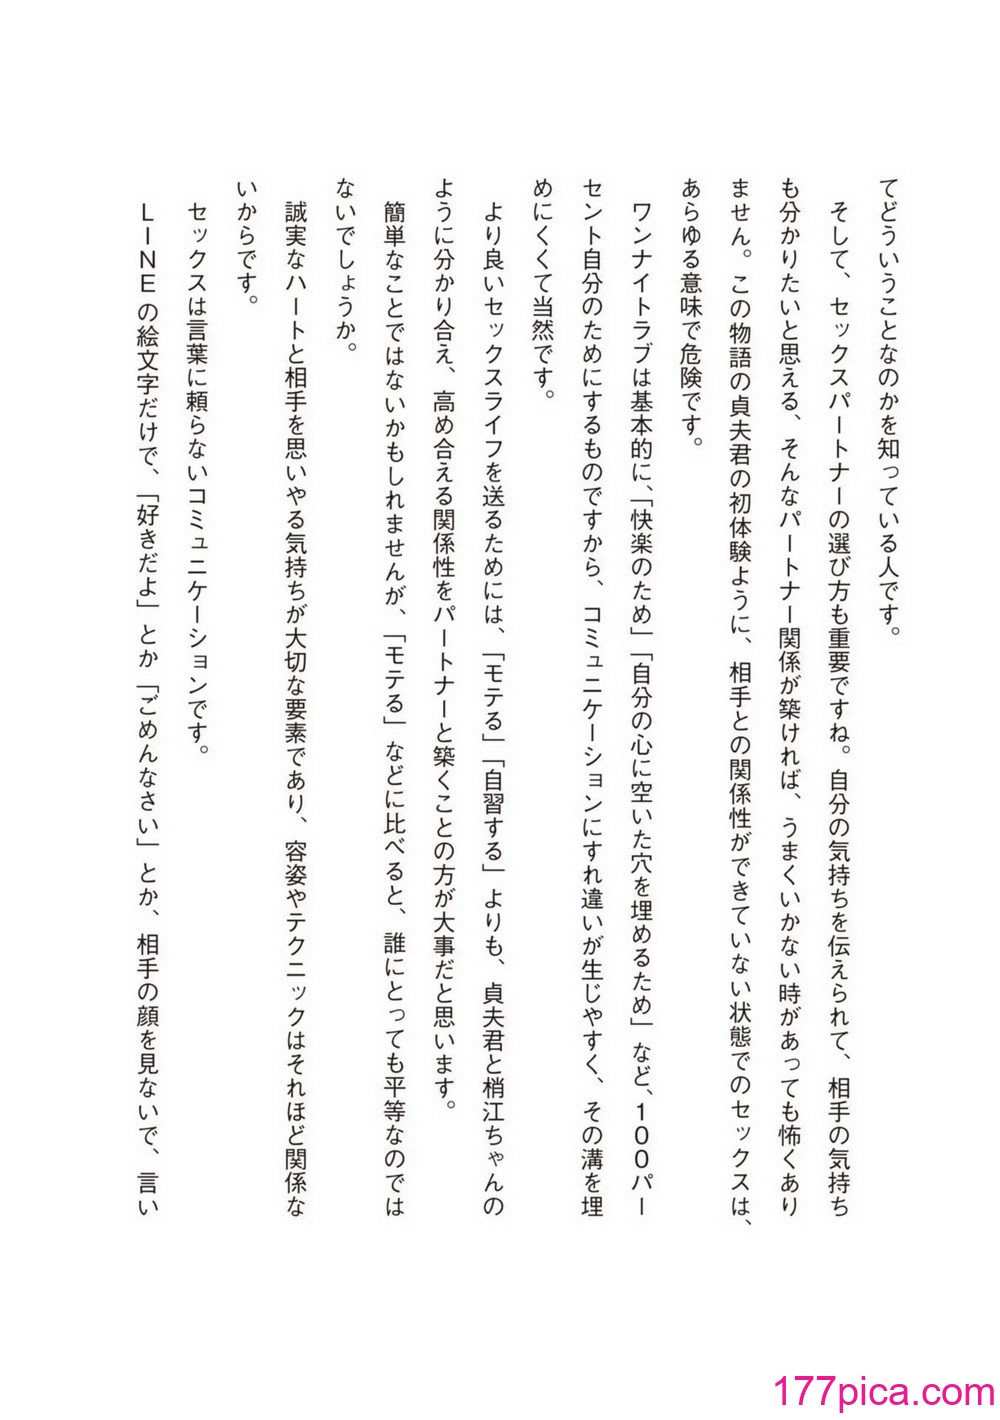 てどういうことなのかを知っている人です。
そして、セックスパートナーの選び方も重要ですね。自分の気持ちを伝えられて、相手の気持ち
も分かりたいと思える、そんなパートナー関係が築ければ、うまくいかない時があっても怖くあり
ません。この物語の貞夫君の初体験ように、相手との関係性ができていない状態でのセックスは、
あらゆる意味で危険です。
ワンナイトラブは基本的に、「快楽のため」「自分の心に空いた穴を埋めるため」など、100パー
セント自分のためにするものですから、コミュニケーションにすれ違いが生じやすく、その溝を埋
めにくくて当然です。
より良いセックスライフを送るためには、「モテる」「自習する」よりも、貞夫君と梢江ちゃんの
ように分かり合え、高め合える関係性をパートナーと築くことの方が大事だと思います。
簡単なことではないかもしれませんが、「モテる」などに比べると、誰にとっても平等なのでは
ないでしょうか。
誠実なハートと相手を思いやる気持ちが大切な要素であり、容姿やテクニックはそれほど関係な
いからです。
セックスは言葉に頼らないコミュニケーションです。
LINEの絵文字だけで、「好きだよ」とか「ごめんなさい」とか、相手の顔を見ないで、言い
177pica.com